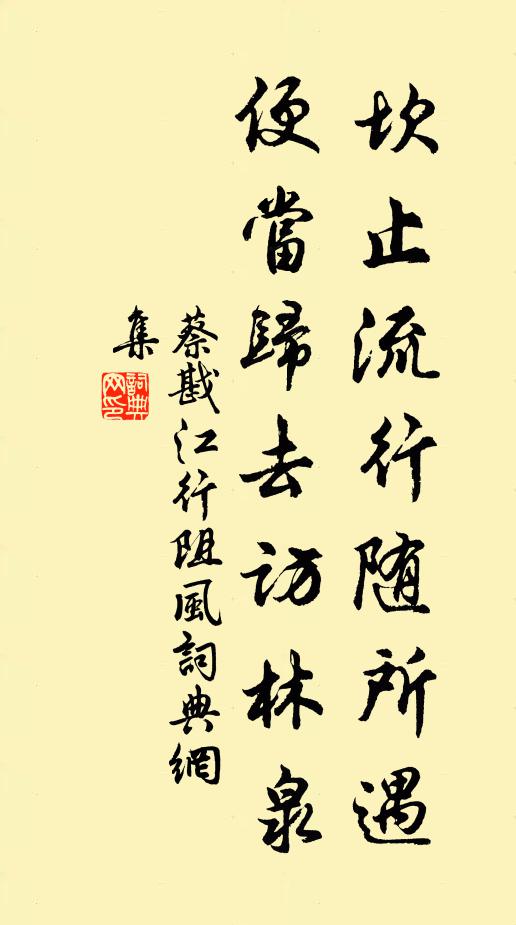 坎止流行随所遇
便當歸去訪林泉
蔡戡江行阻風詞典網
集
詞典
网印